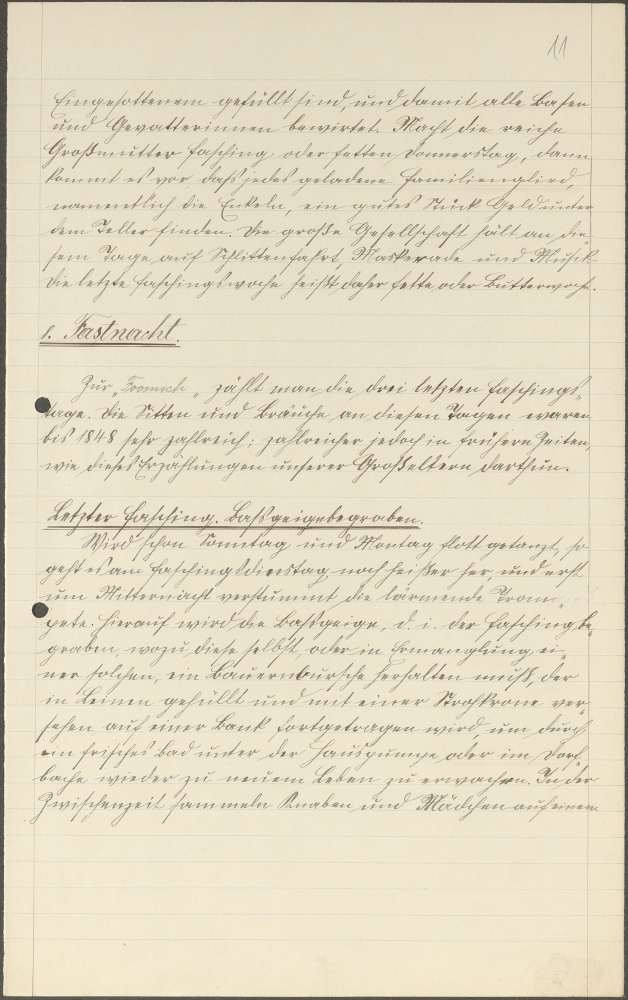 11
Eingesottenem gefüllt sind, und damit alle Basen
und Gevatterinnen bewirtet. Macht die reiche
Großmutter Fasching oder fetten Donnerstag, dann
kommt es vor, daß jedes geladene Familienglied,
namentlich die Enkeln, ein gutes Stück Geld unter
dem Teller finden. Die große Gesellschaft hält an die-
sem Tage auf Schlittenfahrt, Maskerade und Musik.
Die letzte Faschingswoche heißt daher fette oder Butterwoche.
Fastnacht.
Zur „ “ zählt man die drei letzten Faschings-
tage. Die Sitten und Bräuche an diesen Tagen waren
bis 1848 sehr zahlreich; zahlreicher jedoch in frühern Zeiten,
wie dieses Erzählungen unserer Großeltern darthun.
Letzter Fasching. Baßgeigebegraben.
Wird schon Sonntag und Montag flott getanzt, so
geht es am Faschingsdienstag noch heißer her, und erst
um Mitternacht verstummt die lärmende Trom-
pete. Hierauf wird die Baßgeige, d. i. der Fasching be-
graben, wozu diese selbst, oder in Ermanglung ei-
ner solchen, ein Bauernbursche herhalten muß, der
in Leinen gehüllt und mit einer Strohkrone ver-
sehen auf einer Bank fortgetragen wird, um durch
ein frisches Bad unter der Hauspumpe oder im Dorf-
bache wieder zu neuem Leben zu erwachen. In der
Zwischenzeit sammeln Knaben und Mädchen auf einem